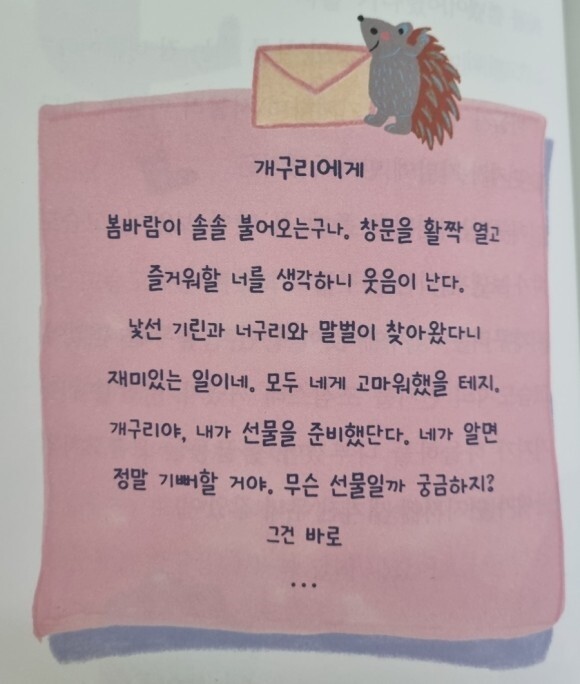 개구리에게
봄바람이 솔솔 불어오는구나. 창문을 활짝 열고
즐거워할 너를 생각하니 웃음이 난다.
낯선 기린과 너구리와 말벌이 찾아왔다니
재미있는 일이네. 모두 네게 고마워했을 테지.
개구리야, 내가 선물을 준비했단다. 네가 알면
정말 기뻐할 거야. 무슨 선물일까 궁금하지?
그건 바로
...